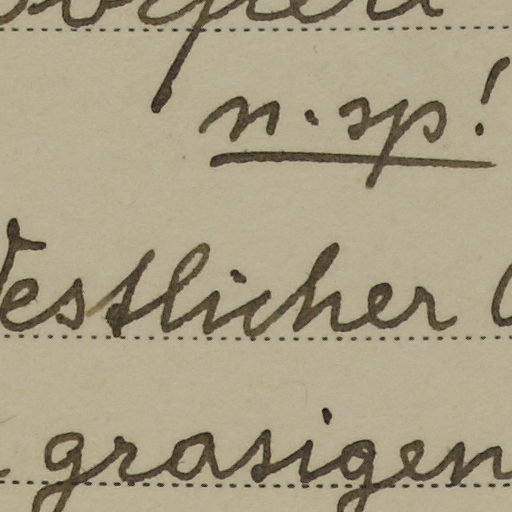 n. sp!
Westlicher
grasigen